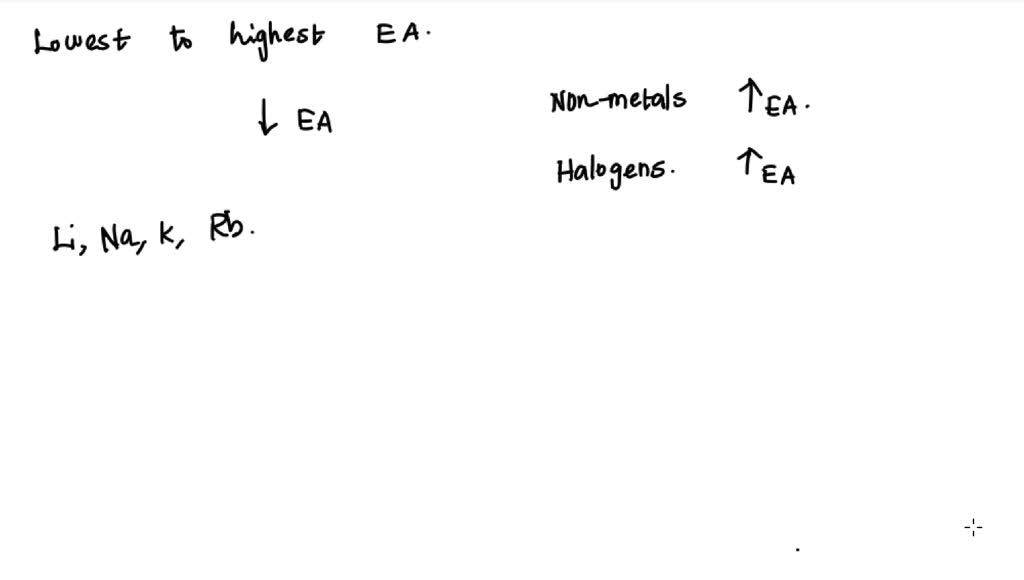 Lowest to highest EA.
↓ EA
Non-metals ↑ EA.
Halogens. ↑ EA
Li, Na, K, Rb.